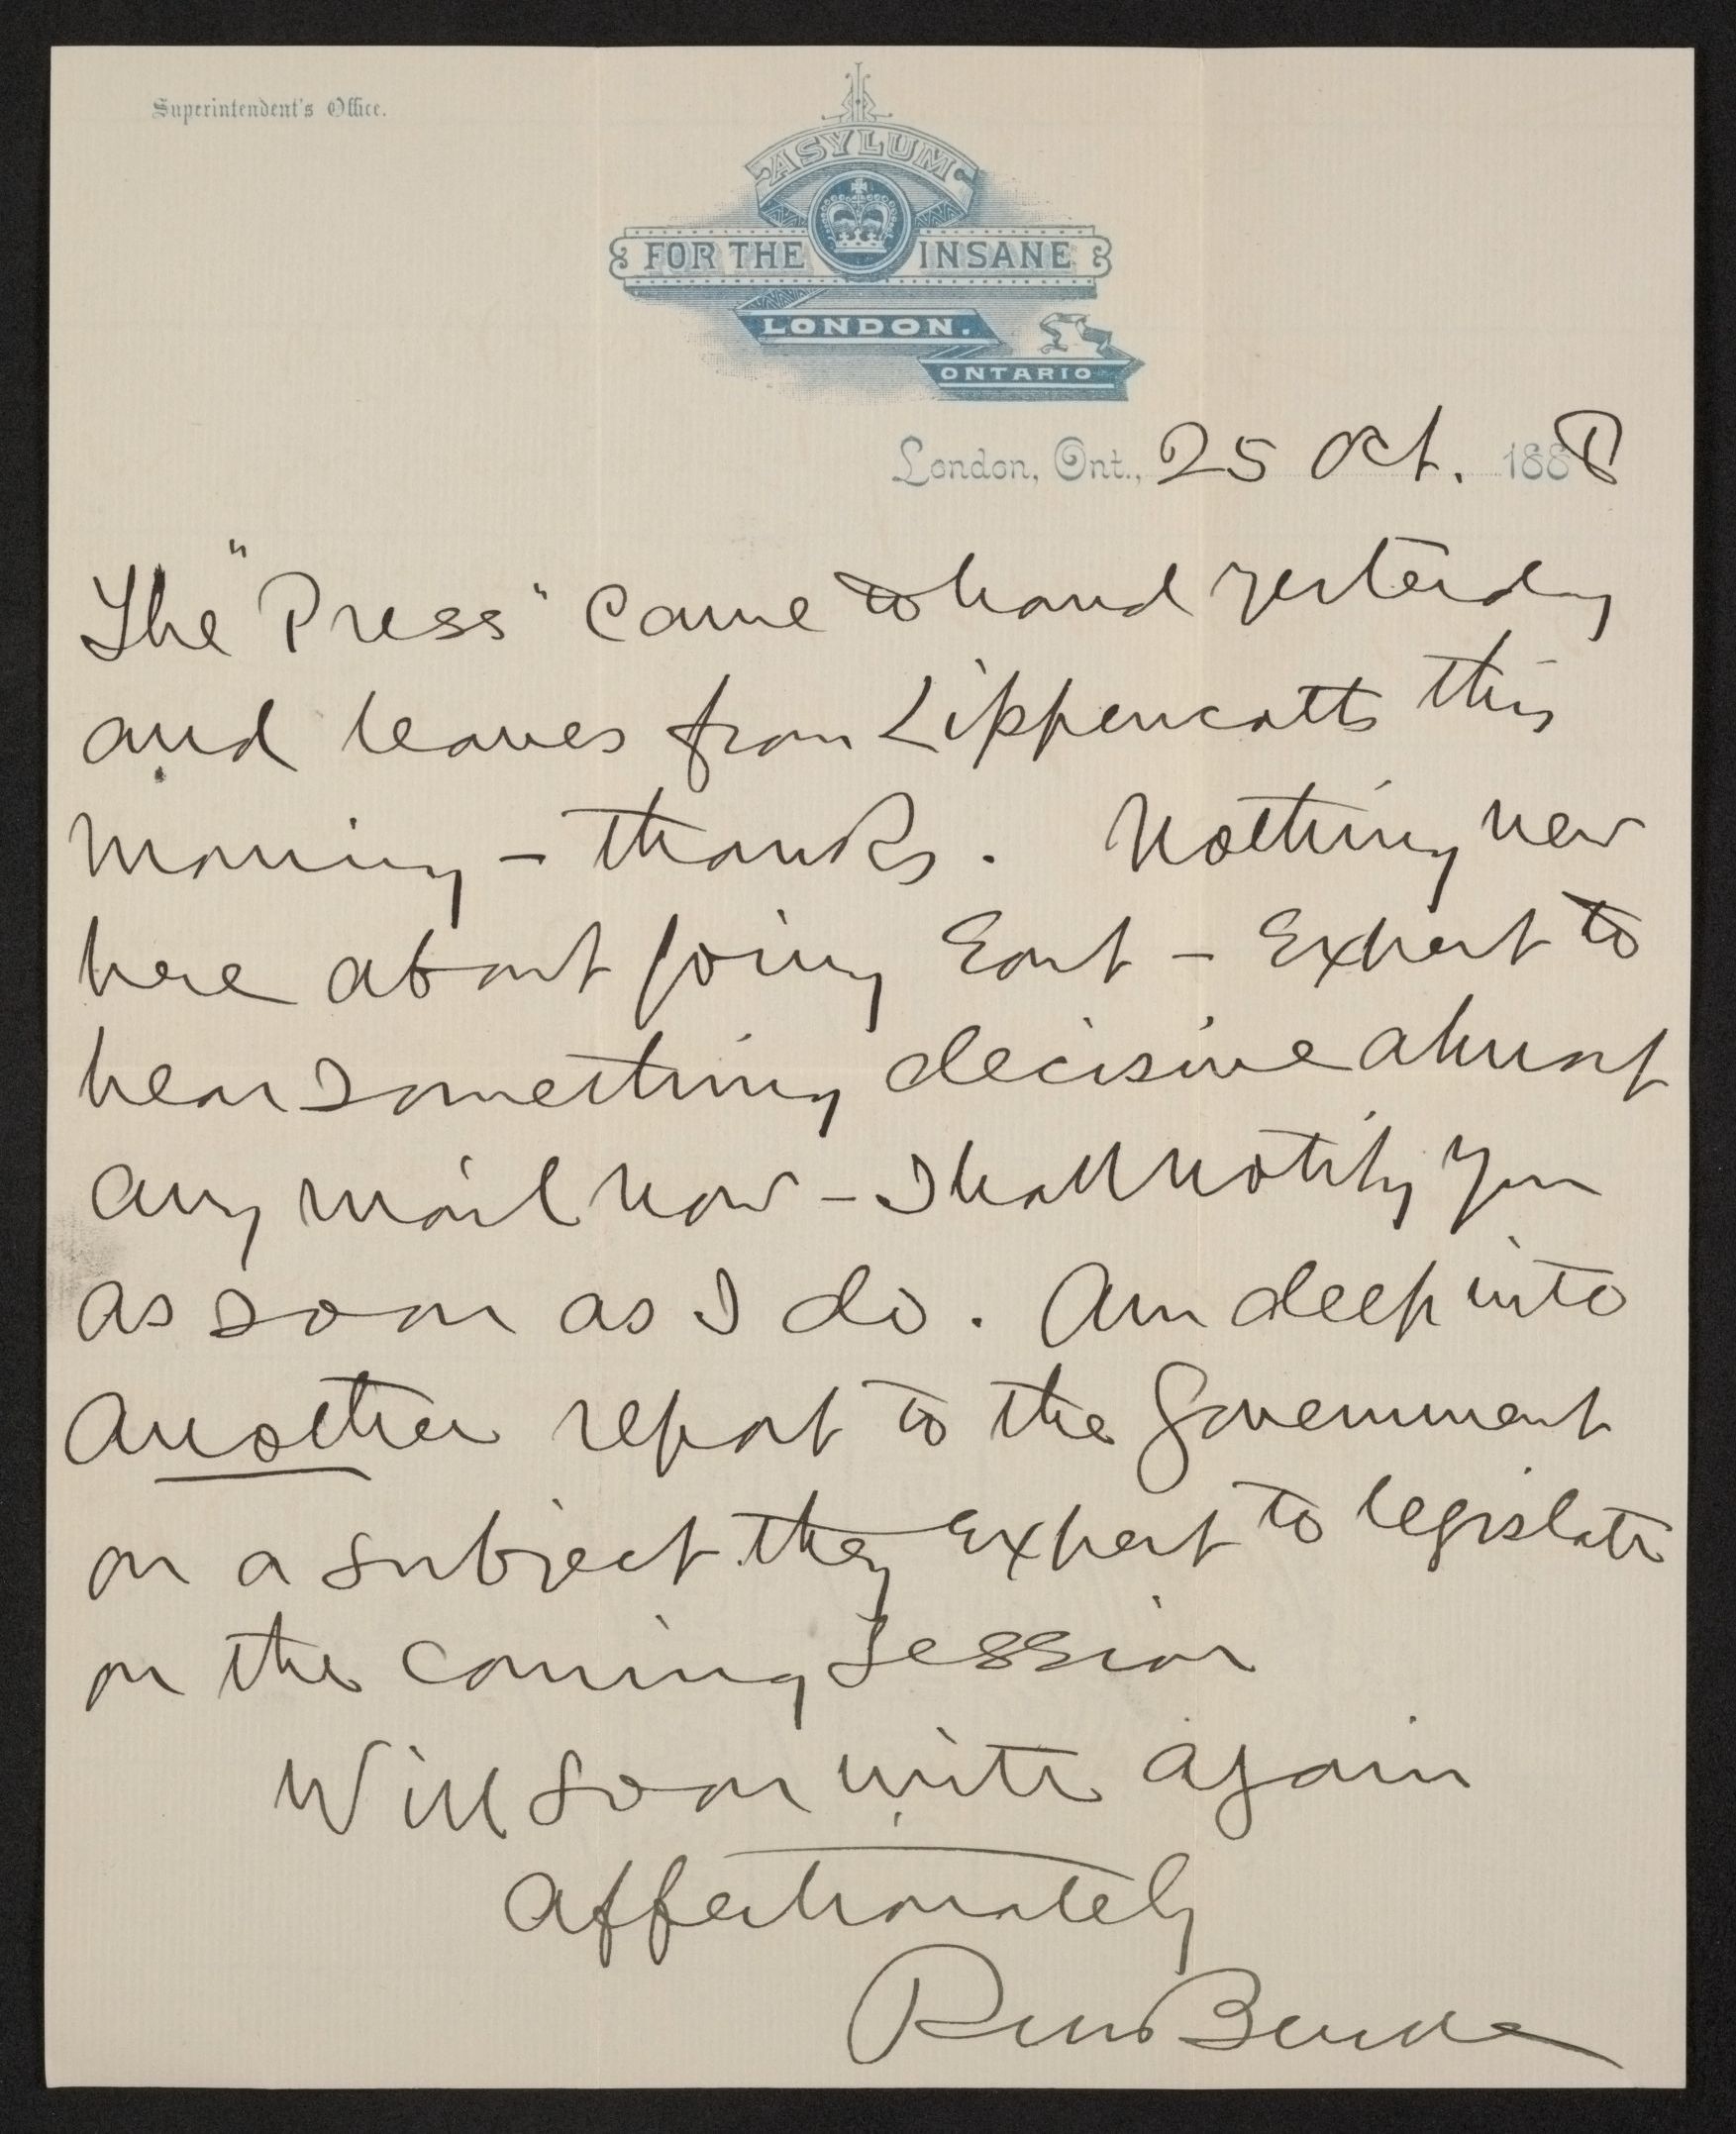 Superintendent's Office.
ASYLUM
FOR THE INSANE
LONDON.
ONTARIO
London, Ont., 25 Oct. 1888
The "Press" came to hand yesterday
and leaves from Lippencotts this
morning – thanks. Nothing new
here about going East – Expect to
hear something decisive almost
any mail now – I shall notify you
as soon as I do. Am deep into
another report to the government
on a subject they expect to legislate
on the coming session
Will soon write again
Affectionately
RM Bucke